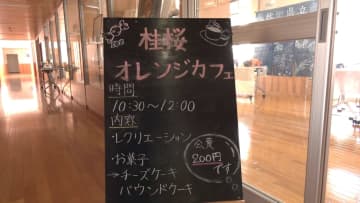 桂桜
オレンジカフェ
時間
10:30〜12:00
内容
・レクリエーション
・お菓子
→チーズケーキ
パウンドケーキ
会費
200円
です!